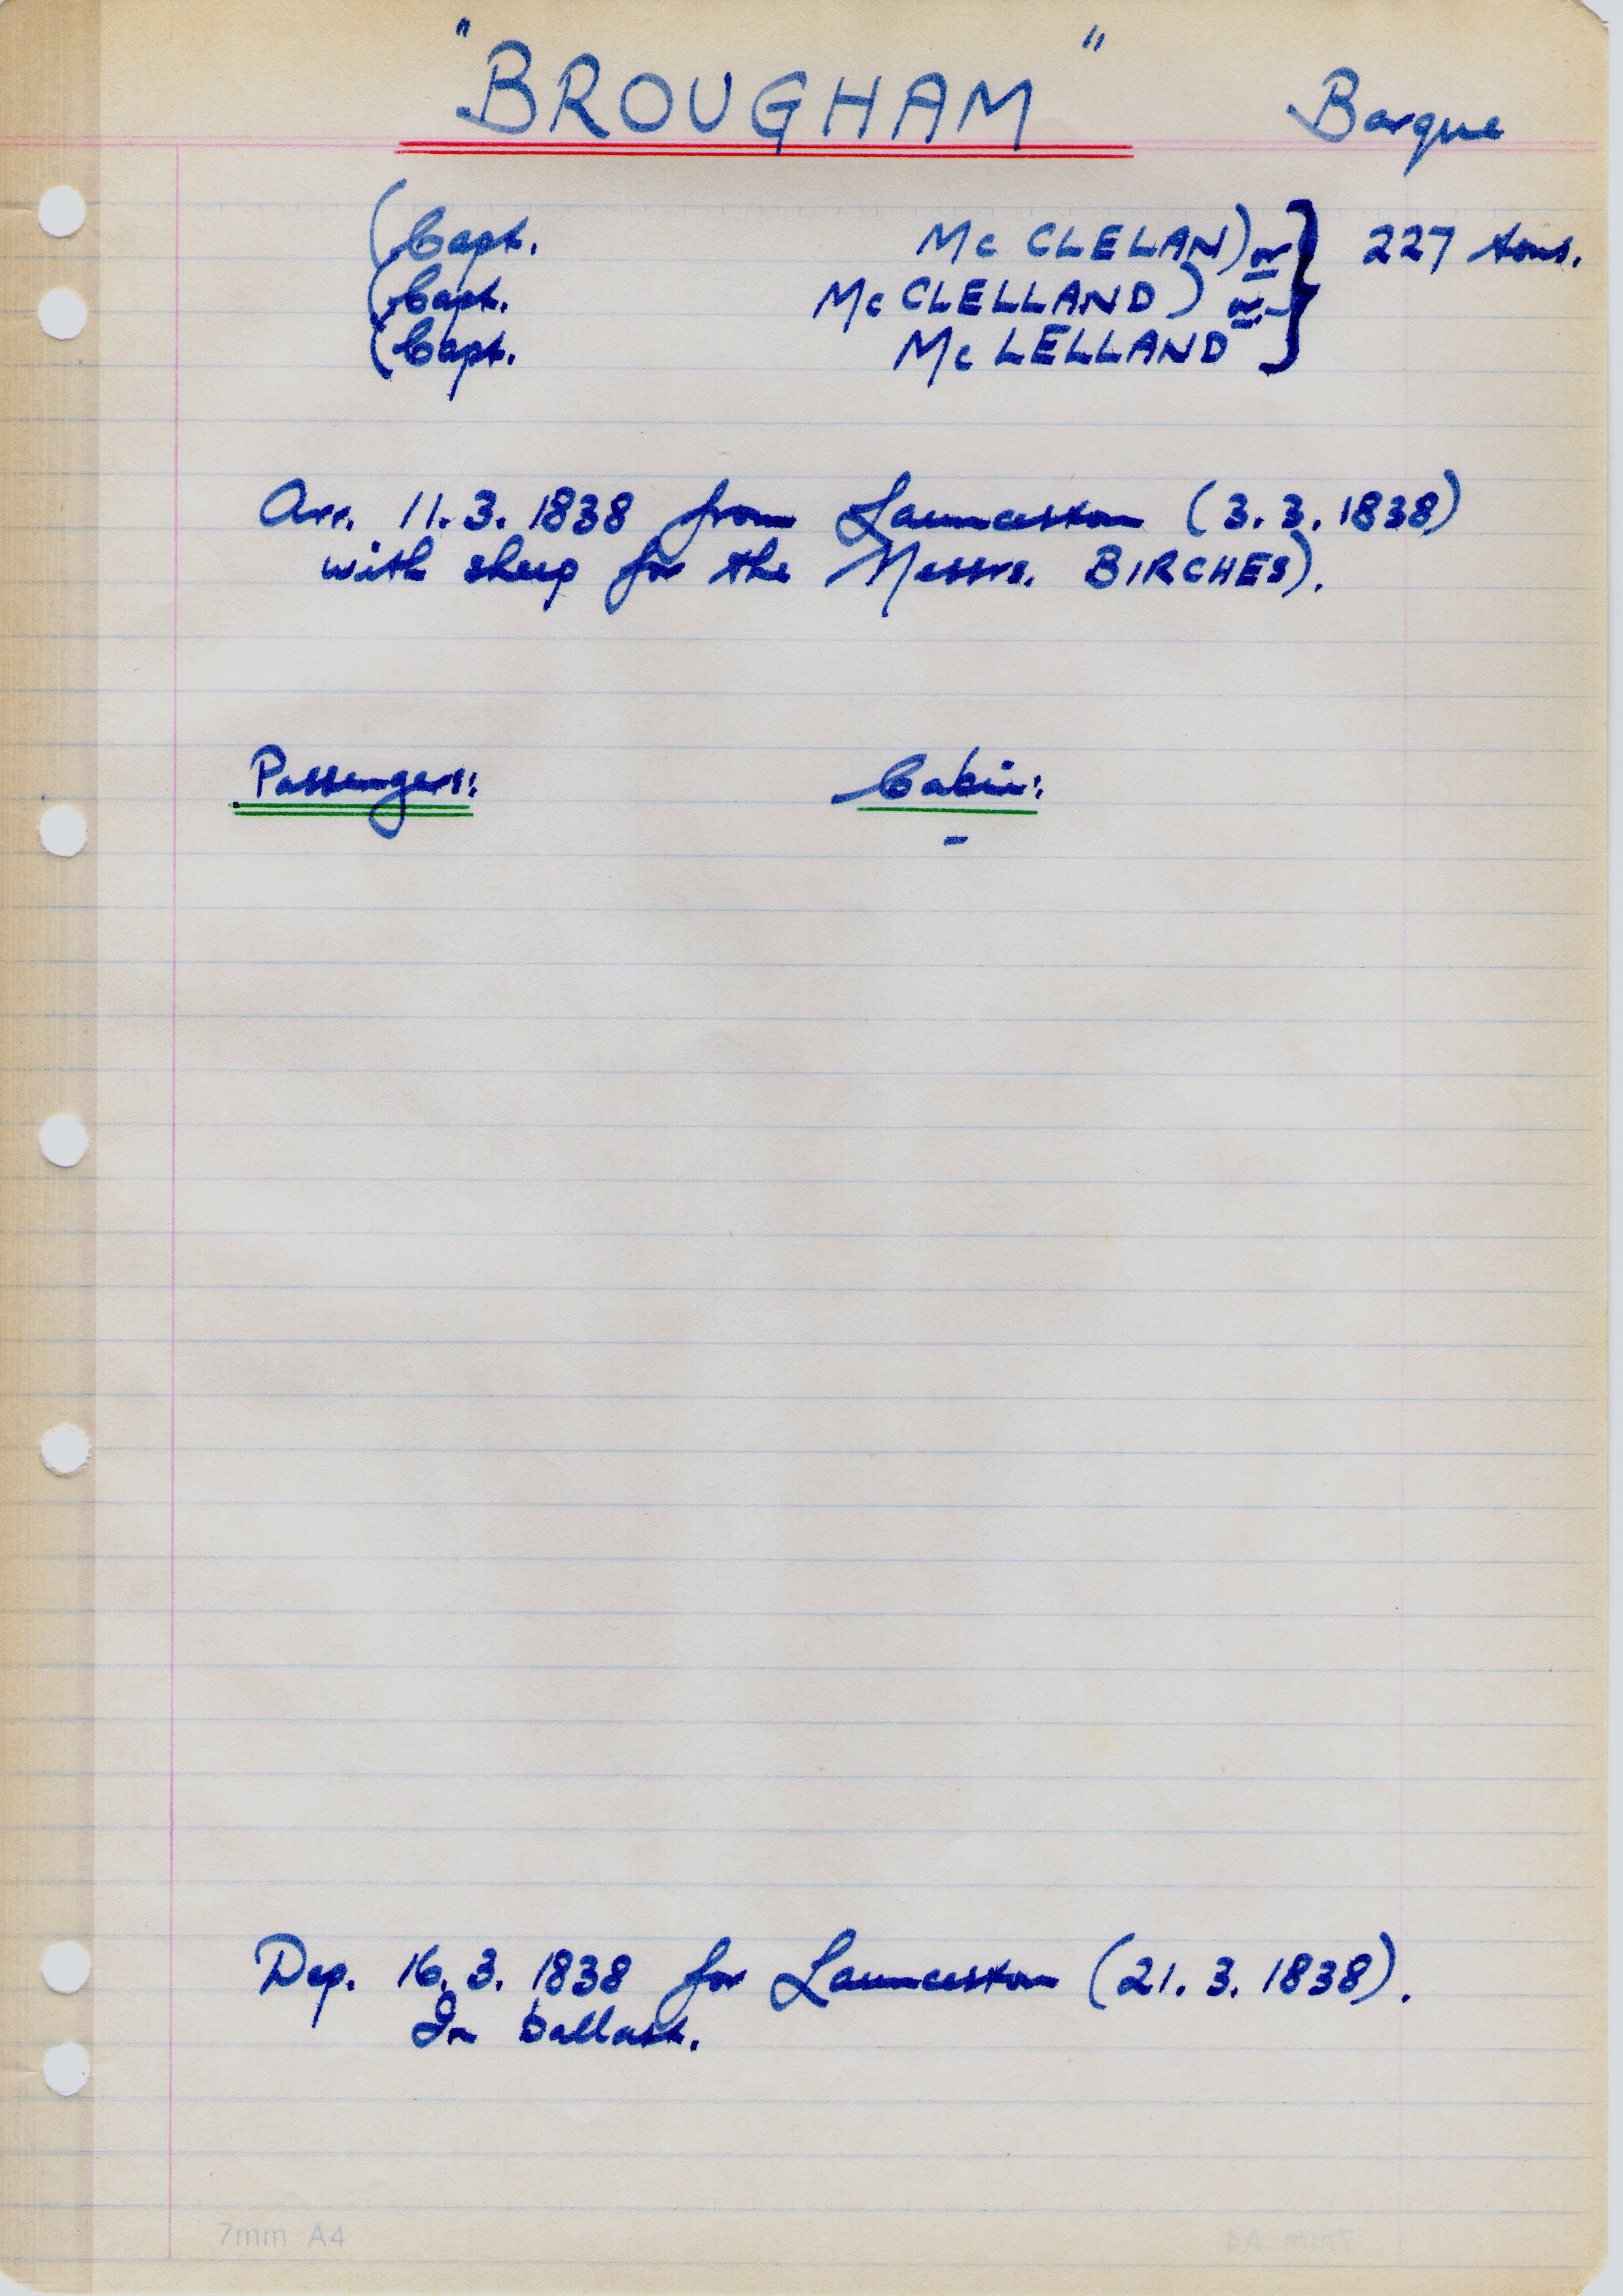 "BROUGHAM" Barque
(Capt. McCLELAN) or } 227 tons.
(Capt. McCLELLAND) or
(Capt. McLELLAND
Arr. 11.3.1838 from Launceston (3.3.1838)
with sheep for the Messrs. BIRCHES).
Passengers: Cabin:
-
Dep. 16.3.1838 for Launceston (21.3.1838).
In ballast.
7mm A4